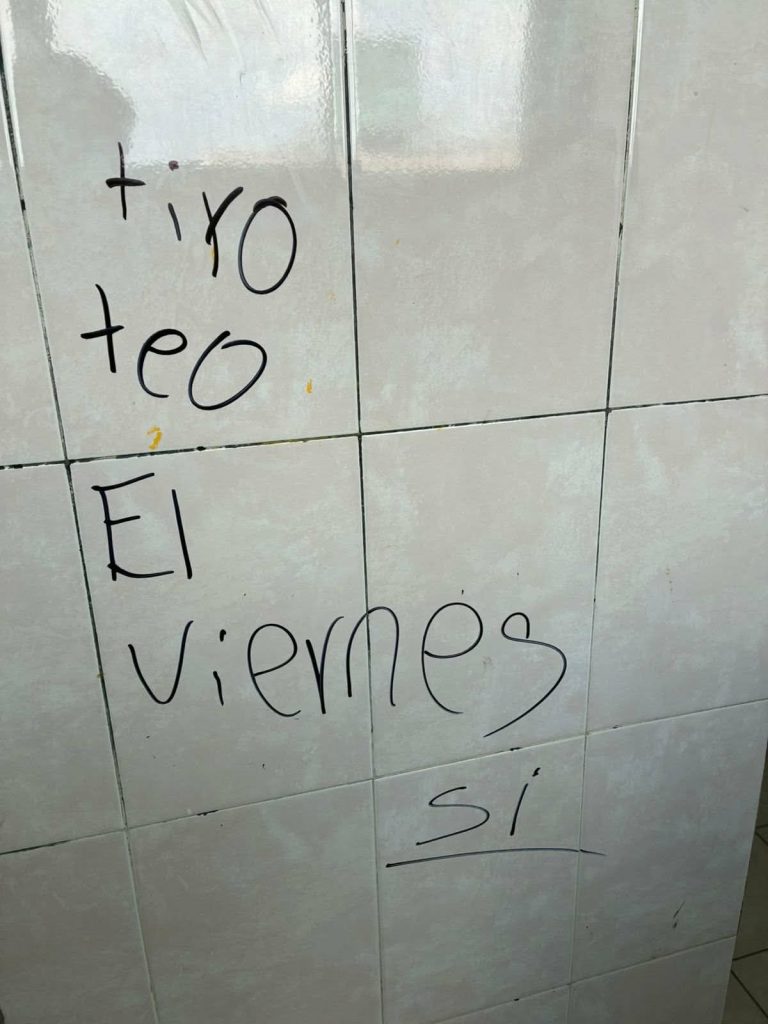 tiro
teo
El
viernes
si